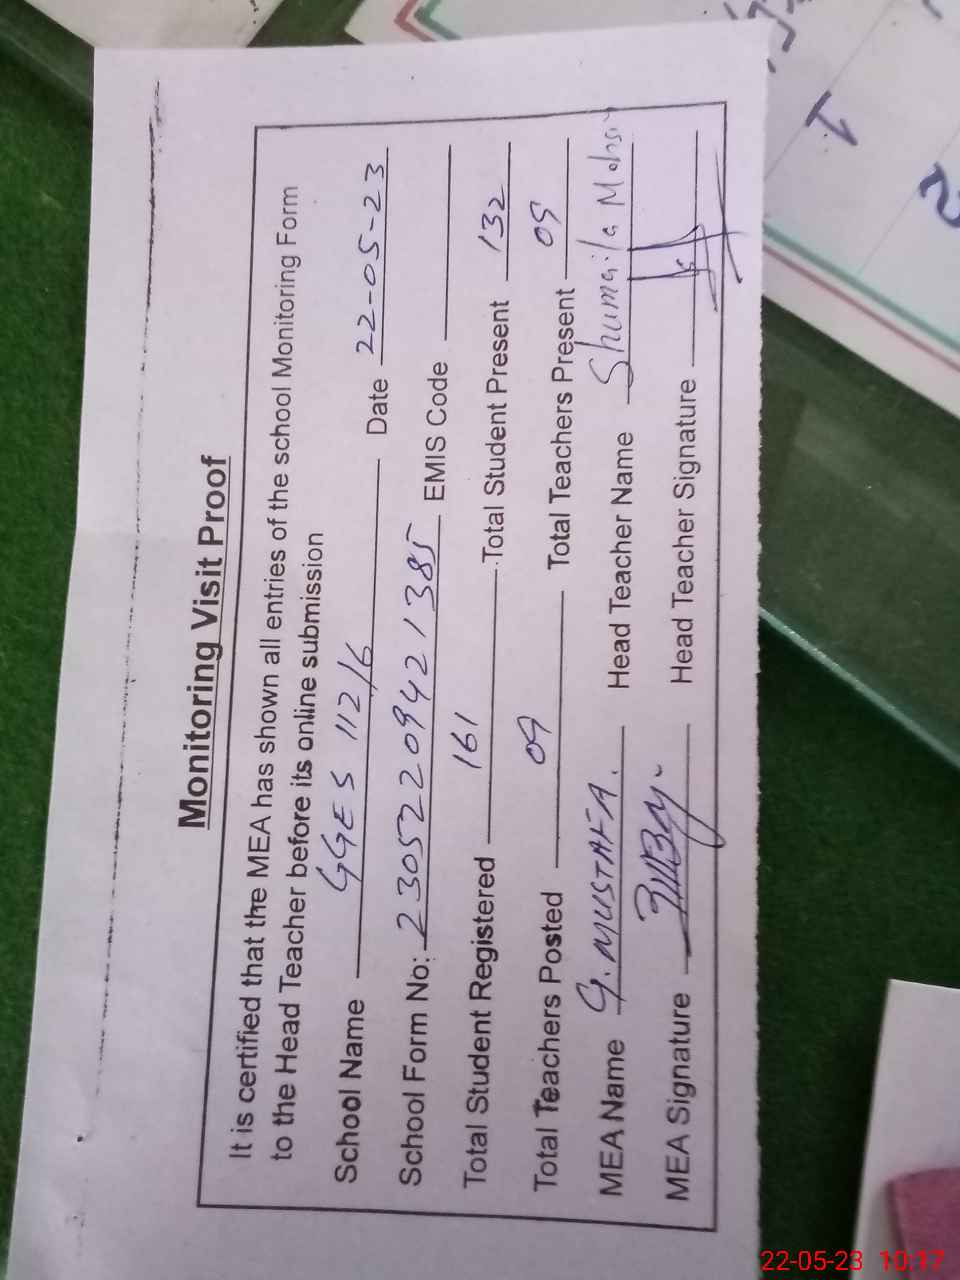 Monitoring Visit Proof
It is certified that the MEA has shown all entries of the school Monitoring Form
to the Head Teacher before its online submission
School Name GGES 112/6 Date 22-05-23
School Form No: 23052209421385 EMIS Code
Total Student Registered 161 Total Student Present 132
Total Teachers Posted 09 Total Teachers Present 09
MEA Name G. MUSTAFA. Head Teacher Name Shumaila Mohsin
MEA Signature Head Teacher Signature
1
2
22-05-23 10:17